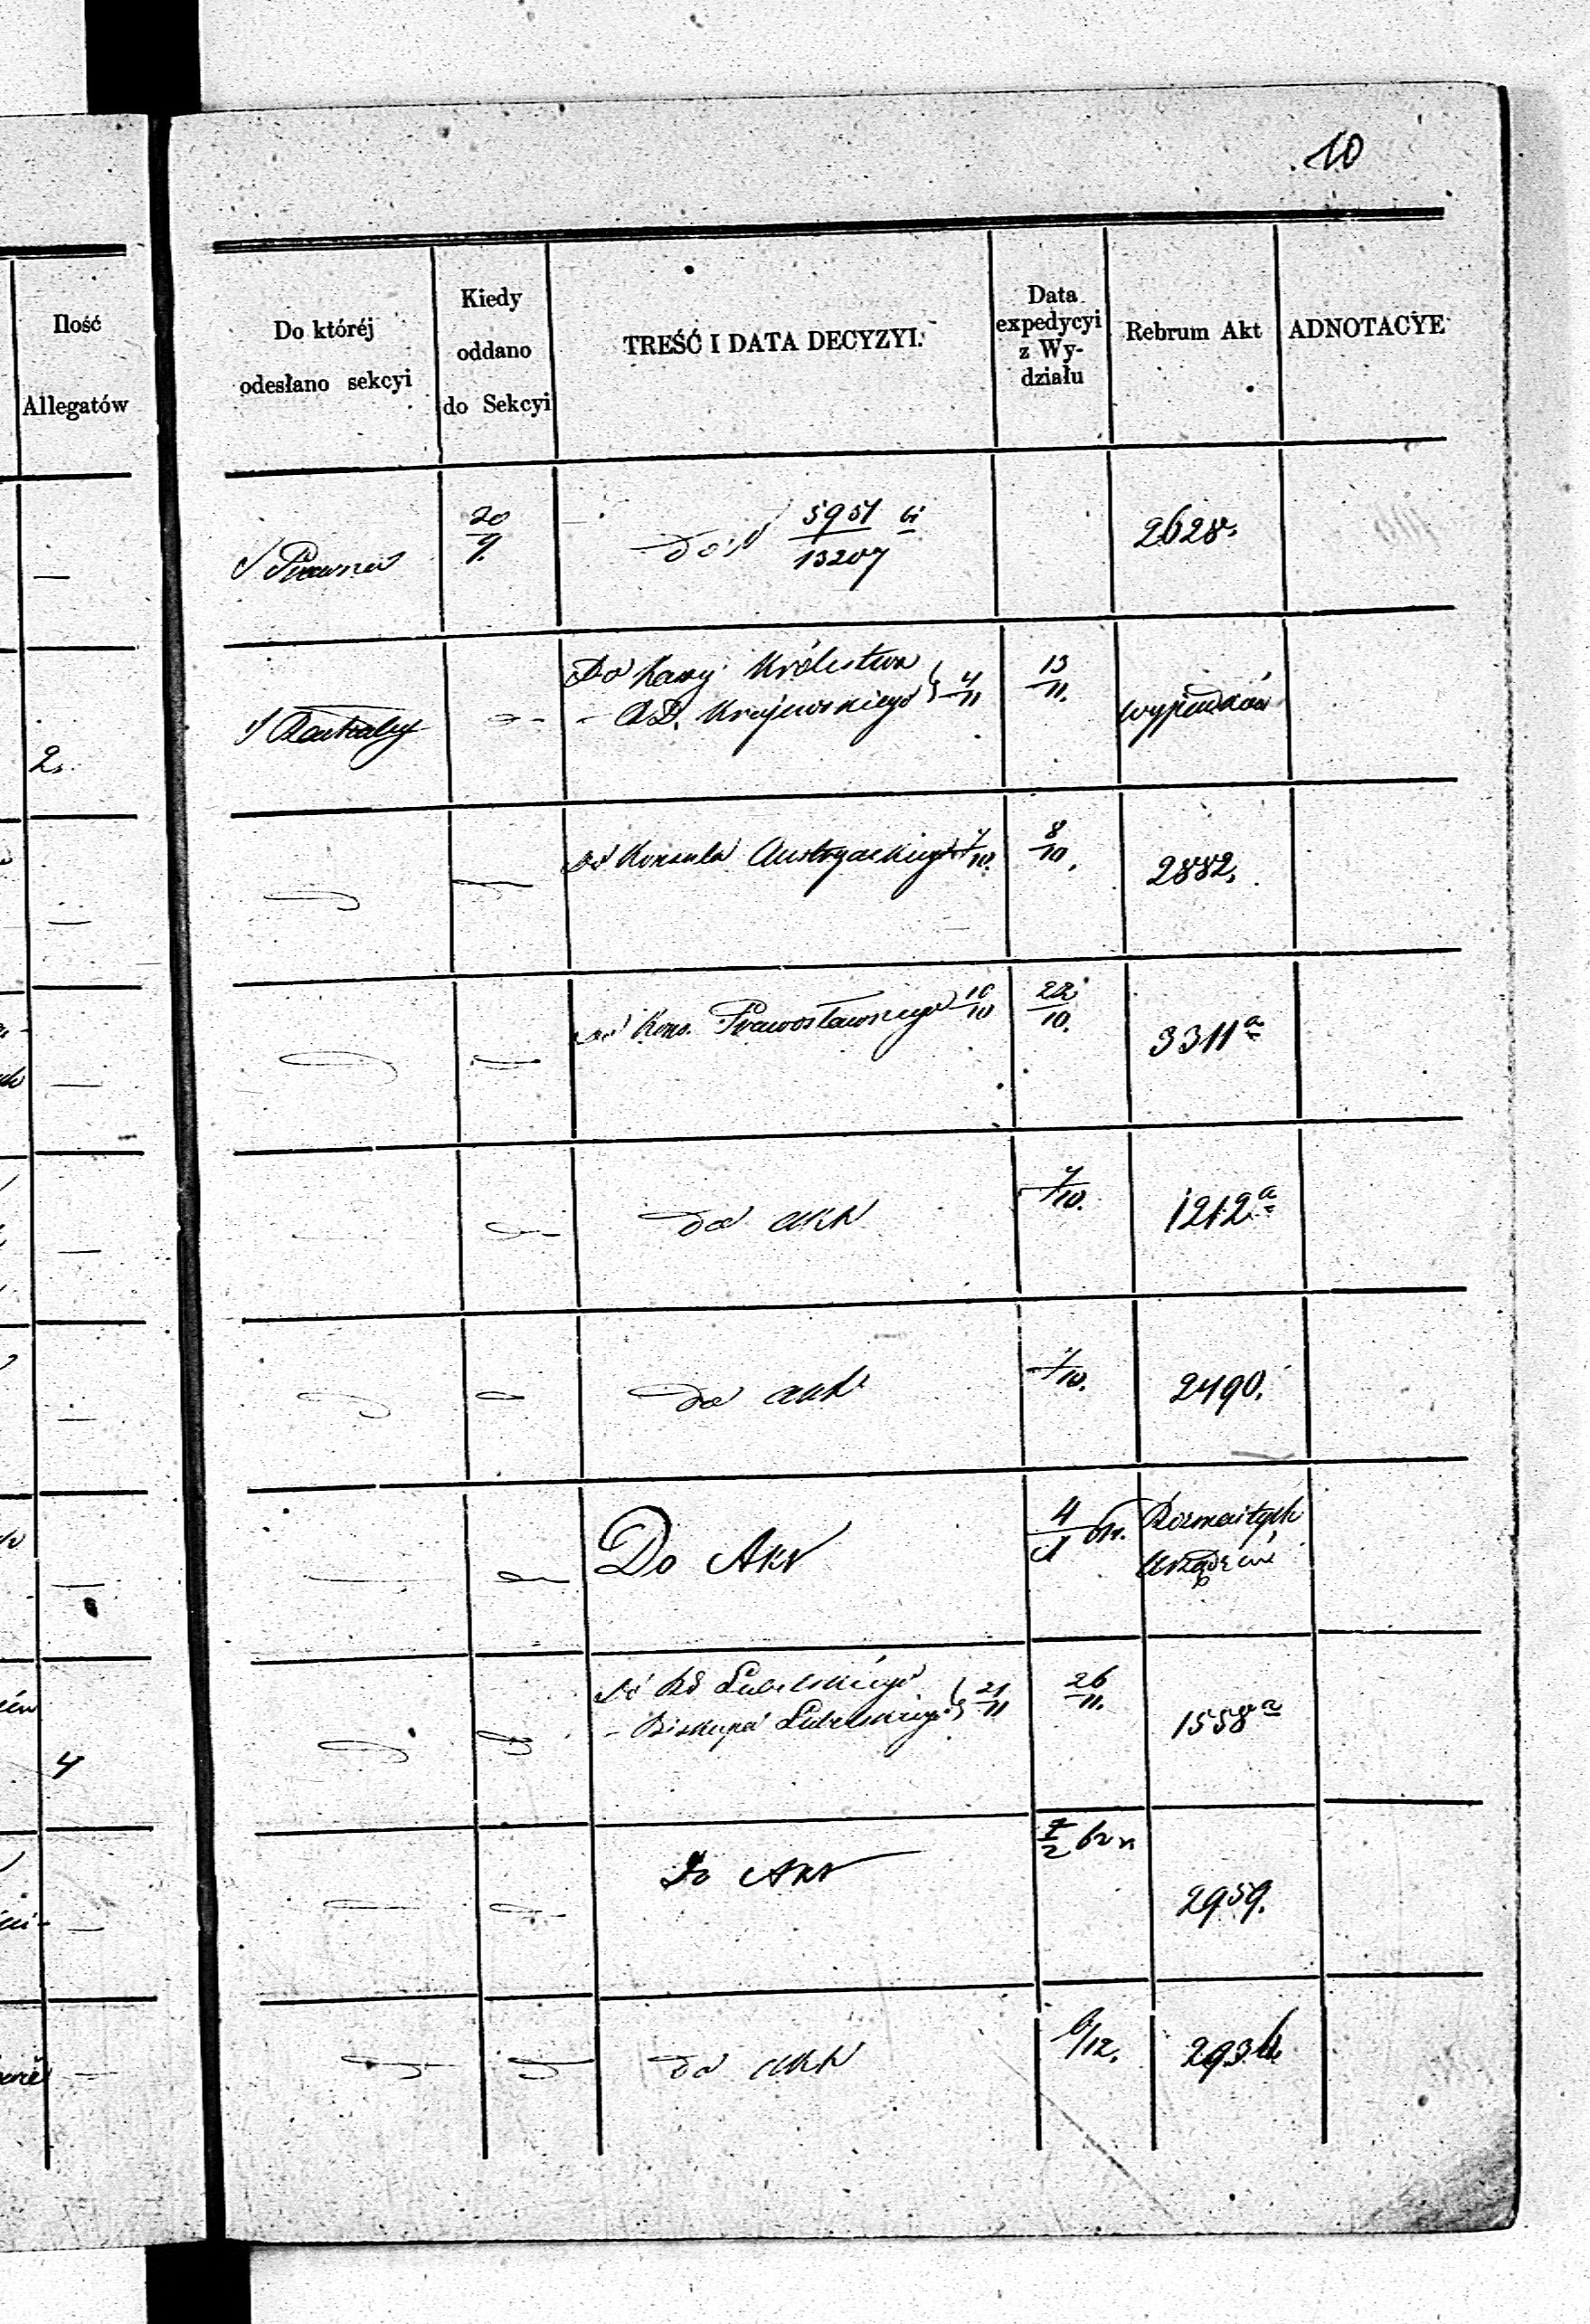 10
Ilość
Allegatów
Do któréj
odesłano sekcyi
Kiedy
oddano
do Sekcyi
TREŚĆ I DATA DECYZYI.
Data
expedycyi
z Wy-
działu
Rebrum Akt
ADNOTACYE
—
Prawna
20/9.
do N 5951/13207
2628.
2.
Do Kasy Królestwa
- Krajewskiego 4/11
13/11.
wypadków
—
od Konsula Austryackiego 7/10.
8/10.
2882.
—
od Kons. Prawosławnego 10/10
22/10.
3311 a
—
do akt
7/10.
1212 a
—
do akt
7/10.
2490.
—
Do Akt
4/1
Rozmaitych
Urządzeń
4
Lubelskiego
- Biskupa Lubelskiego 21/11
26/11.
1558 a
—
Do Akt
2959.
—
do akt
/12.